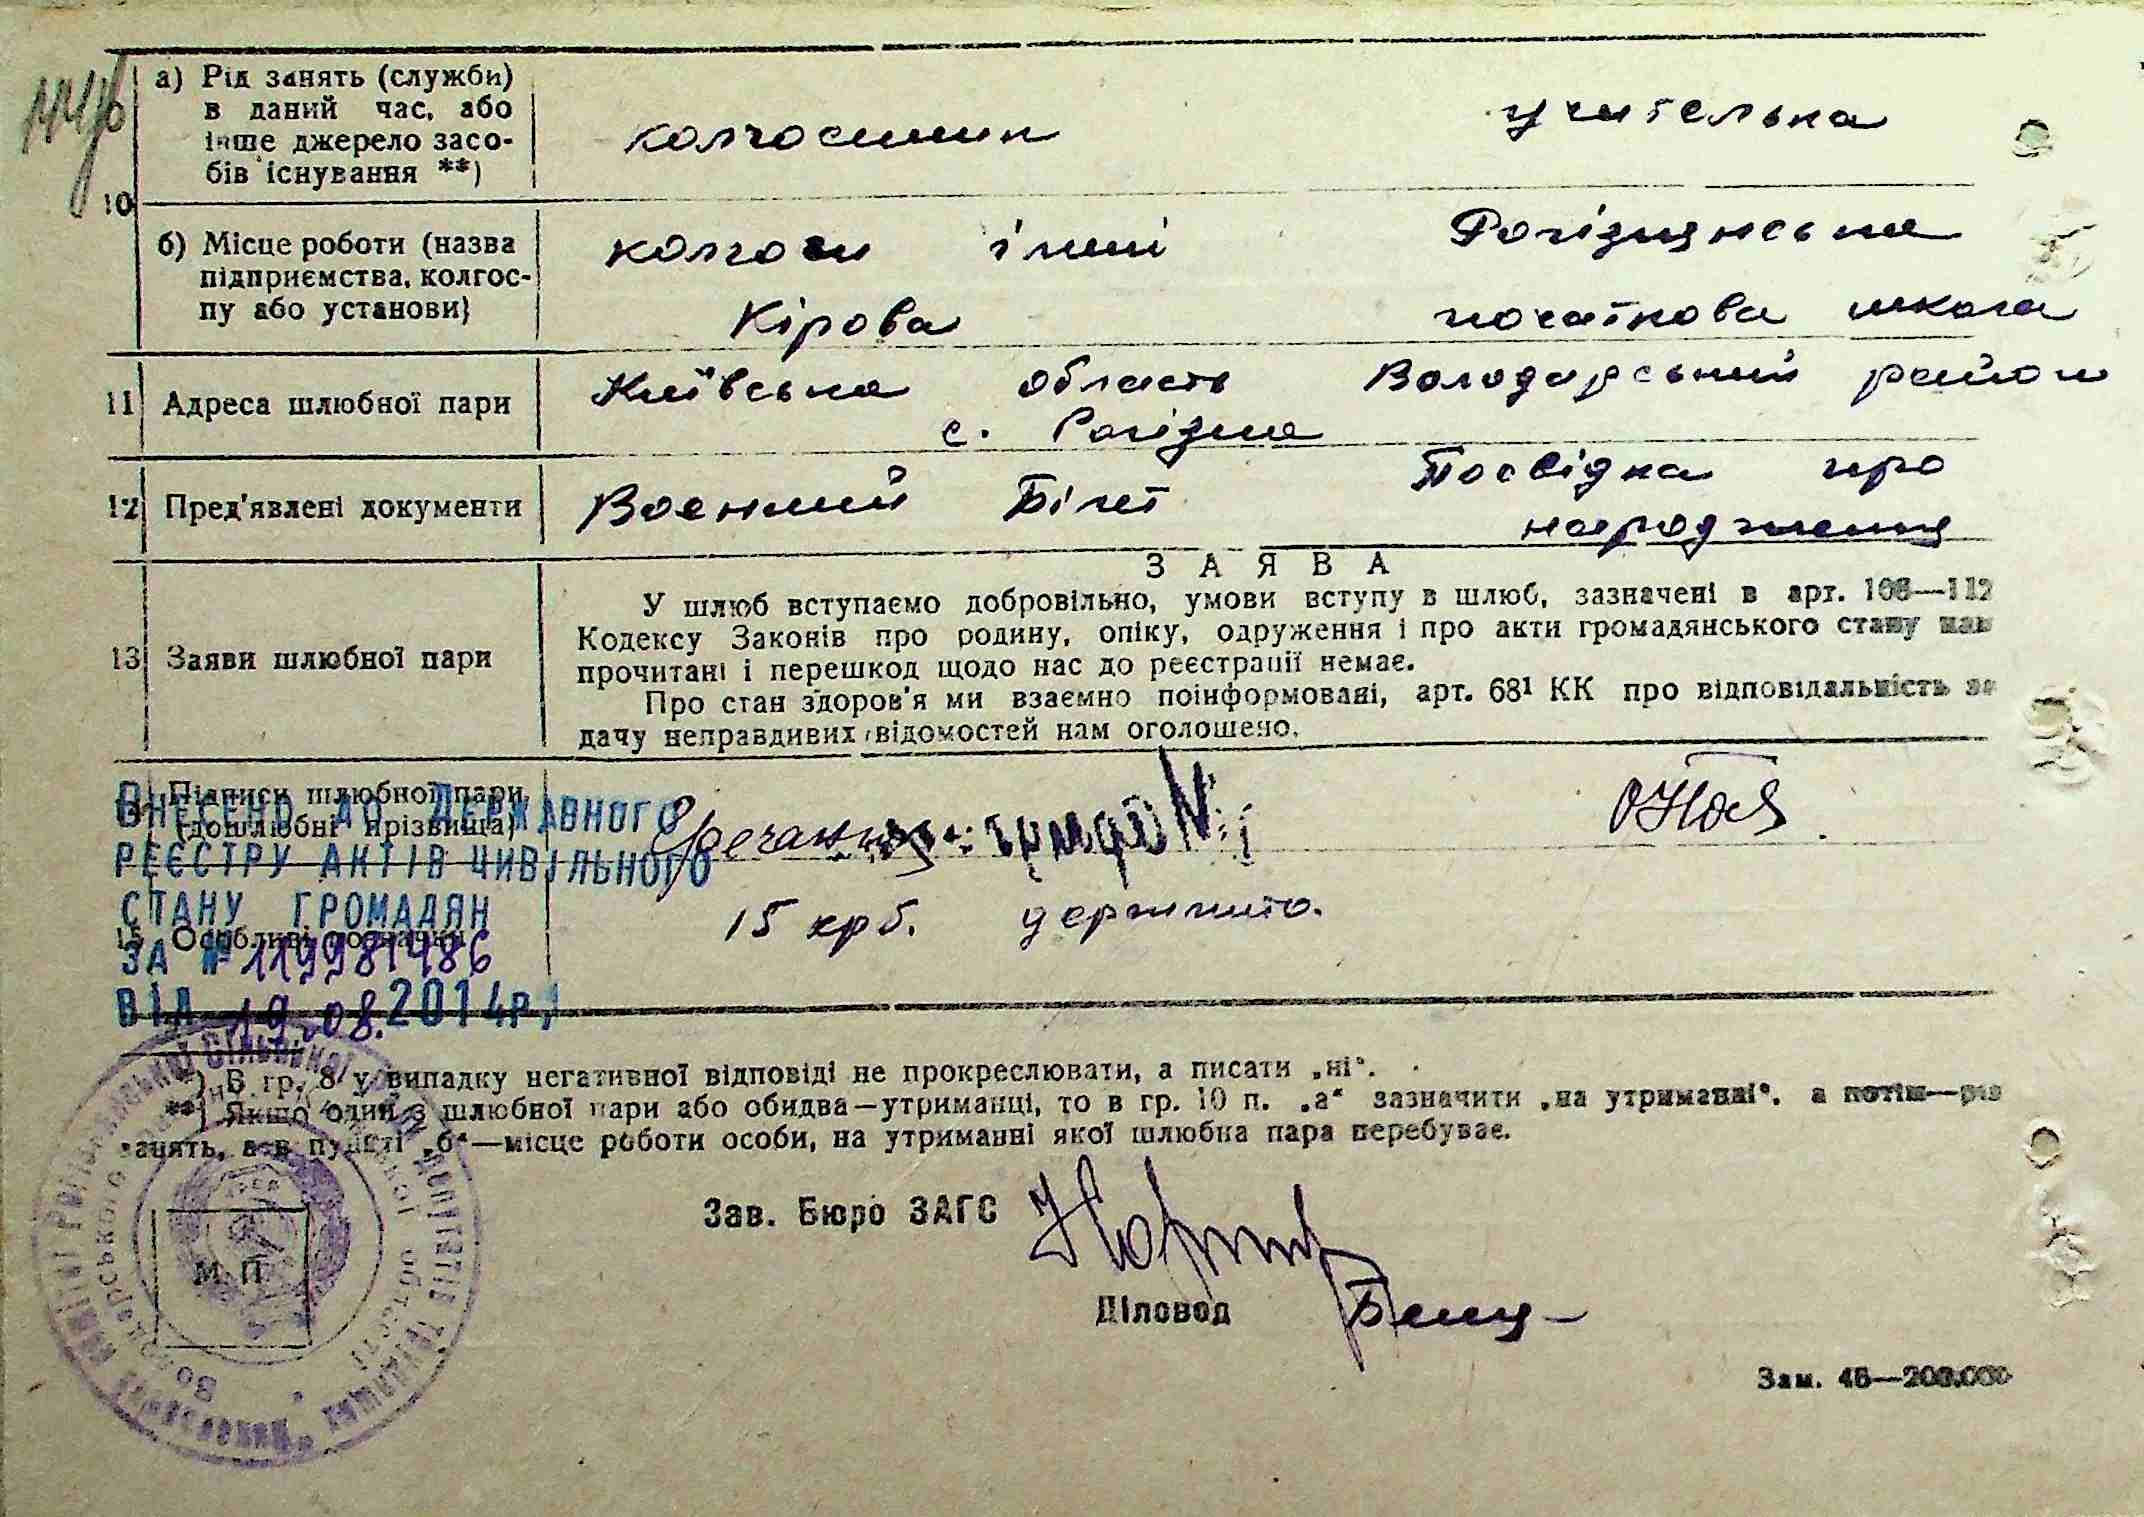 а) Рід занять (служби)
в даний час, або
інше джерело засо-
бів існування **)
колгоспник
учителька
10
б) Місце роботи (назва
підприємства, колгос-
пу або установи)
колгосп імені
Кірова
Рогізнянська
початкова школа
11 Адреса шлюбної пари
Київська область Володарський район
с. Рогізна
12 Пред'явлені документи
Воєнний Білет
Посвідка про
народження
13 Заяви шлюбної пари
ЗАЯВА
У шлюб вступаємо добровільно, умови вступу в шлюб, зазначені в арт. 108—112
Кодексу Законів про родину, опіку, одруження і про акти громадянського стану нам
прочитані і перешкод щодо нас до реєстрації немає.
Про стан здоров'я ми взаємно поінформовані, арт. 68¹ КК про відповідальність за
дачу неправдивих відомостей нам оголошено.
Підписи шлюбної пари
(дошлюбні прізвища)
15 Особливі
15 крб. держмито.
ВНЕСЕНО ДО ДЕРЖАВНОГО
РЕЄСТРУ АКТІВ ЦИВІЛЬНОГО
СТАНУ ГРОМАДЯН
ЗА № 119981486
ВІД 19.08.2014р.
*) В гр. 8 у випадку негативної відповіді не прокреслювати, а писати „ні“.
**) Якщо один з шлюбної пари або обидва—утриманці, то в гр. 10 п. „а“ зазначити „на утриманні“, а потім—рід
занять, а в пункті „б“—місце роботи особи, на утриманні якої шлюбна пара перебуває.
Зав. Бюро ЗАГС
М П
Діловод
Зам. 46—200.000